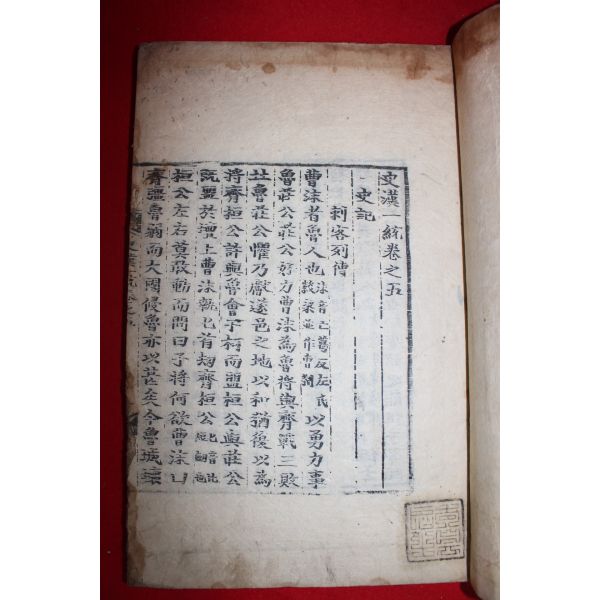 史漢一統卷之五
史記
刺客列傳
曹沫者魯人也沫音亡葛反左氏穀梁並作曹劌以勇力事
魯莊公莊公好力曹沫爲魯將與齊戰三敗
北魯莊公懼乃獻遂邑之地以和猶復以爲
將齊桓公許與魯會于柯而盟桓公與莊公
既盟於壇上曹沫執匕首劫齊桓公匕音比短劒也
桓公左右莫敢動而問曰子將何欲曹沫曰
齊彊魯弱而大國侵魯亦以甚矣今魯城壞